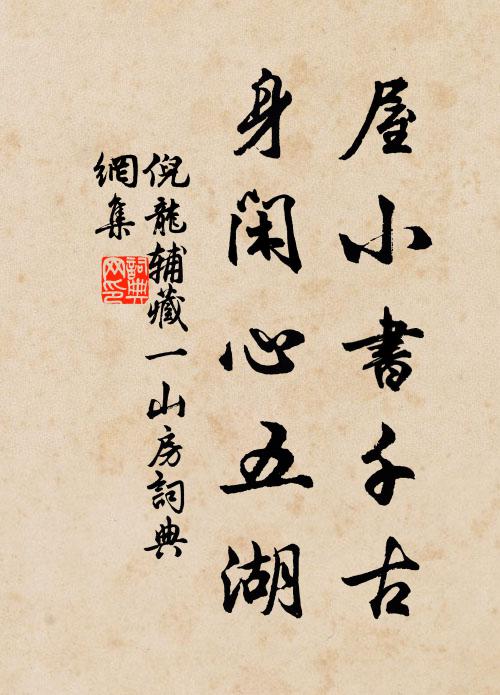 屋小書千古
身閑心五湖
倪龍辅藏一山房詞典
網集
詞典
网印